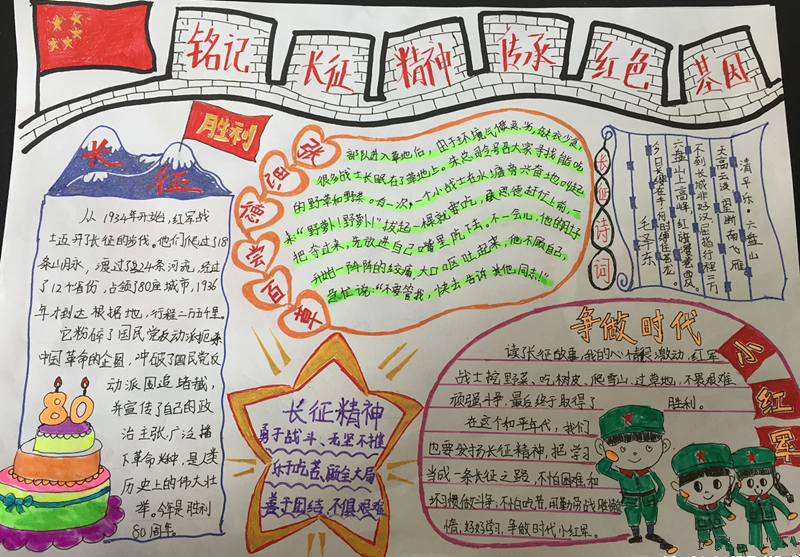 铭记 长征 精神 传承 红色 基因
胜利
长征
从1934年开始,红军战
士迈开了长征的步伐。他们爬过了18
条山脉,渡过了24条河流,经过
了12个省份,占领了80座城市,1936
年才到达根据地,行程二万五千里。
它粉碎了国民党反动派扼杀
中国革命的企图,冲破了国民党反
动派围追堵截,
并宣传了自己的政
治主张,广泛播
下革命火种,是人类
历史上的伟大壮
举。今年是胜利
80周年。
80
张思德尝百草
部队进入草地后,由于环境气候恶劣,缺衣少食,
很多战士长眠在了草地上。朱总司令号召大家寻找能吃
的野草和野菜。有一次,一个小战士在水塘旁
来“野萝卜!野萝卜!”拔起一棵就要吃,张思德赶忙上前,
把夺过来,先放进自己嘴里
开始一阵阵的绞痛,大口呕吐起来,他不顾自己,
急忙说:“不要管我,快去告诉其他同志!”
长征诗词
清平乐·六盘山
天高云淡,望断南飞雁。
不到长城非好汉,屈指行程二万。
六盘山上高峰,红旗漫卷西风。
今日长缨在手,何时缚住苍龙。
毛泽东
长征精神
勇于战斗、无坚不摧
乐于吃苦、顾全大局
善于团结、不惧艰难
争做时代
小红军
读了长征故事,我的心情很激动,红军
战士挖野菜、吃树皮、爬雪山、过草地,不畏艰难
顽强斗争,最后终于取得了胜利。
在这个和平年代,我们
也要发扬长征精神,把学习
当成一条长征之路,不怕困难和
坏习惯做斗争;不怕吃苦,用勤劳战胜懒
惰,好好学习,争做时代小红军。